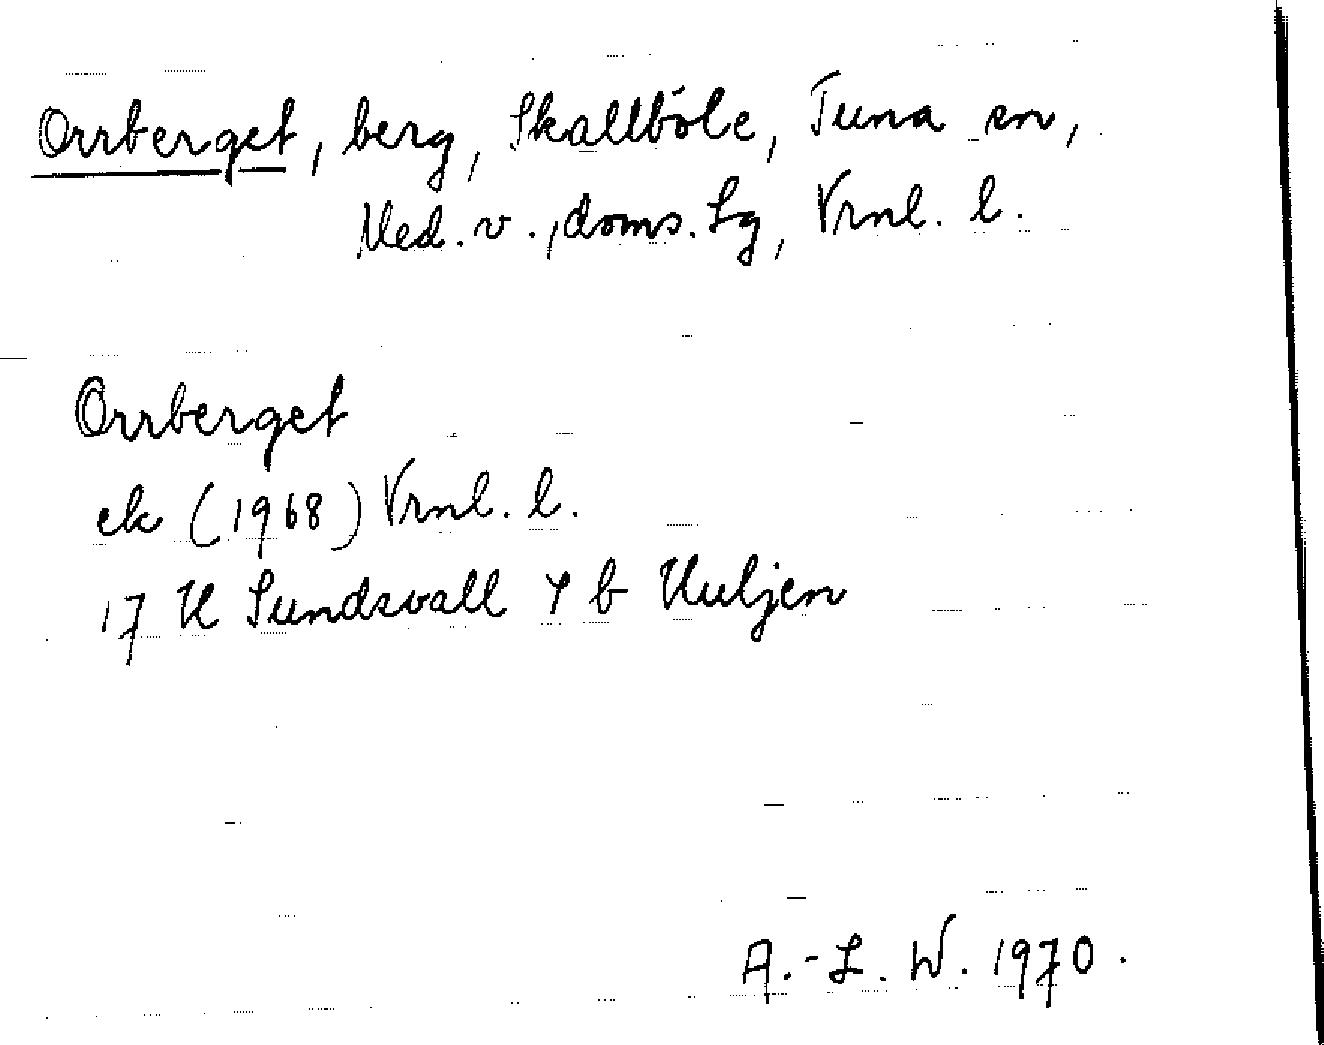 Orrberget, berg, Skallböle, Tuna sn,
Med. v., doms. Lg, Vrnl. l.
Orrberget
ek (1968) Vrnl. l.
17 H Sundsvall 7 b Huljen
A.-L. W. 1970.